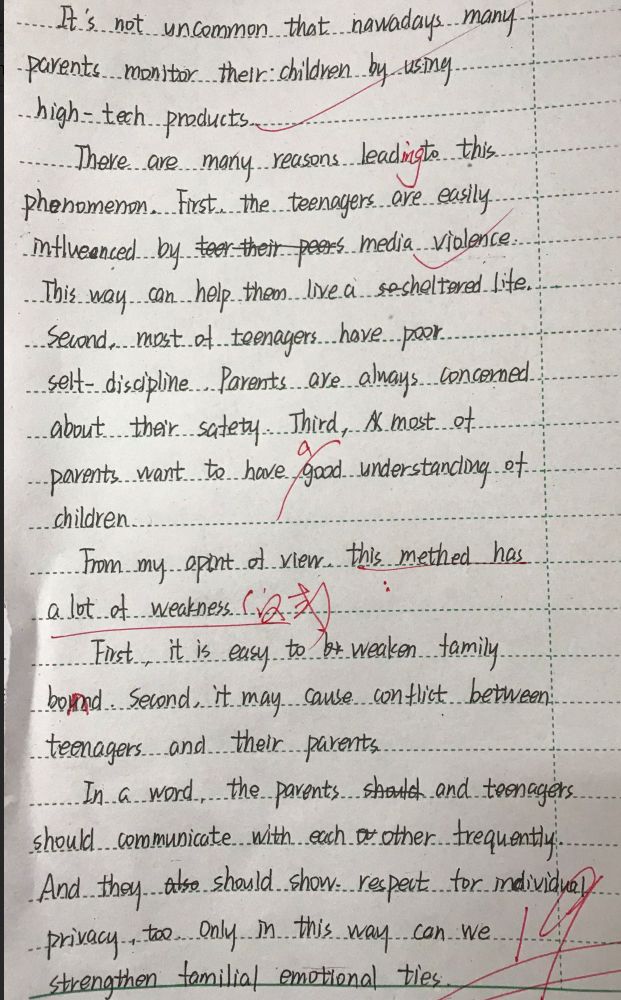 It's not uncommon that nawadays many
parents monitor their children by using
high-tech products.
There are many reasons leadingto this
phenomenon. First, the teenagers are easily
influenced by teer their peers media violence.
This way can help them live a so sheltered life.
Second, most of teenagers have poor
self-discipline. Parents are always concerned
about their safety. Third, A most of
a
parents want to have good understanding of
children
From my opint of view, this methed has
a lot of weakness
First, it is easy to br weaken family
bond. Second, it may cause conflict between
teenagers and their parents
In a word, the parents should and teenagers
should communicate with each or other frequently.
And they also should show respect for individual
privacy, too. Only in this way can we
19
strengthen familial emotional ties.